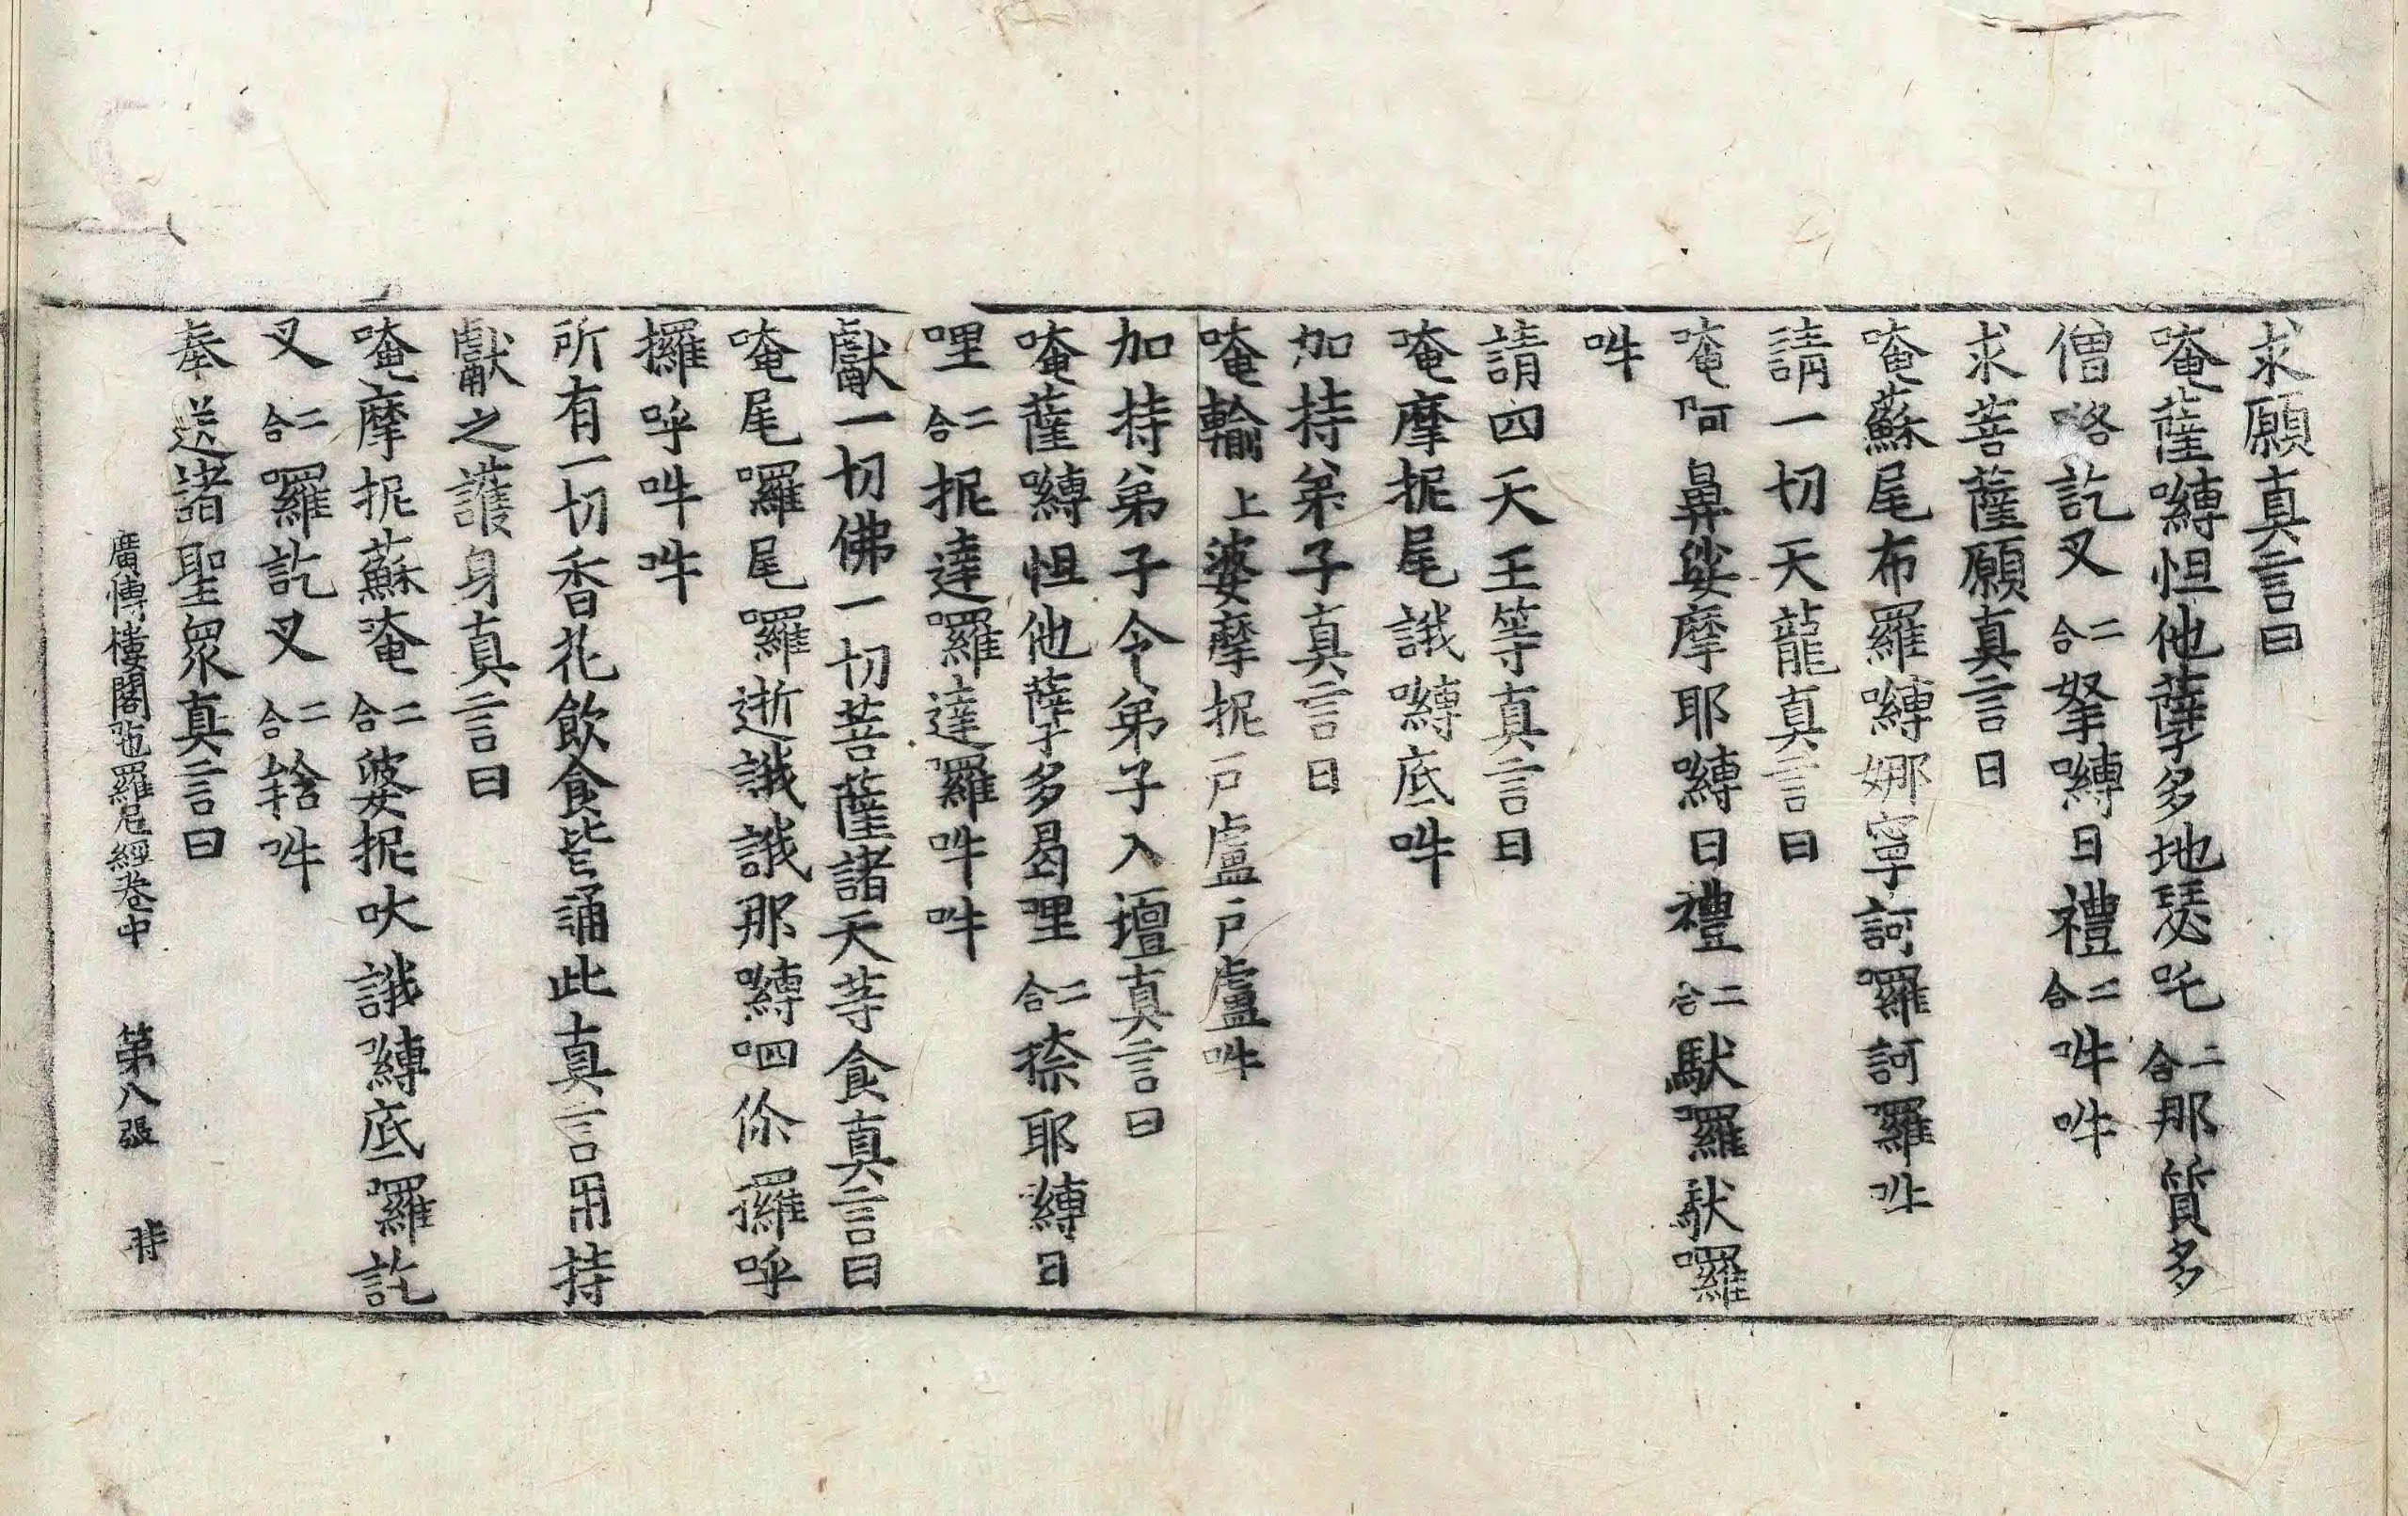 求願真言曰
唵薩嚩怛他薩多地瑟吒二合那質多
僧咯訖叉二合拏嚩日禮二合吽吽
求菩薩願真言曰
唵蘇尾布羅嚩娜寧訶羅訶羅吽
請一切天龍真言曰
唵阿鼻娑摩耶嚩日禮二合馱羅馱囉
吽
請四天王等真言曰
唵摩抳尾誐嚩底吽
加持弟子真言曰
唵輸上婆摩抳戶盧戶盧吽
加持弟子令弟子入壇真言曰
唵薩嚩怛他蘖多曷哩二合捺耶嚩日
哩二合抳達囉達囉吽吽
獻一切佛一切菩薩諸天等食真言曰
唵尾囉尾囉逝誐誐那嚩呬儞攞呼
攞呼吽吽
所有一切香花飲食皆誦此真言用持
獻之護身真言曰
唵摩抳蘇唵二合婆抳吠誐嚩底囉訖
叉二合羅訖叉二合𤚥吽
奉送諸聖眾真言曰
廣博樓閣陁羅尼經卷中 第八張